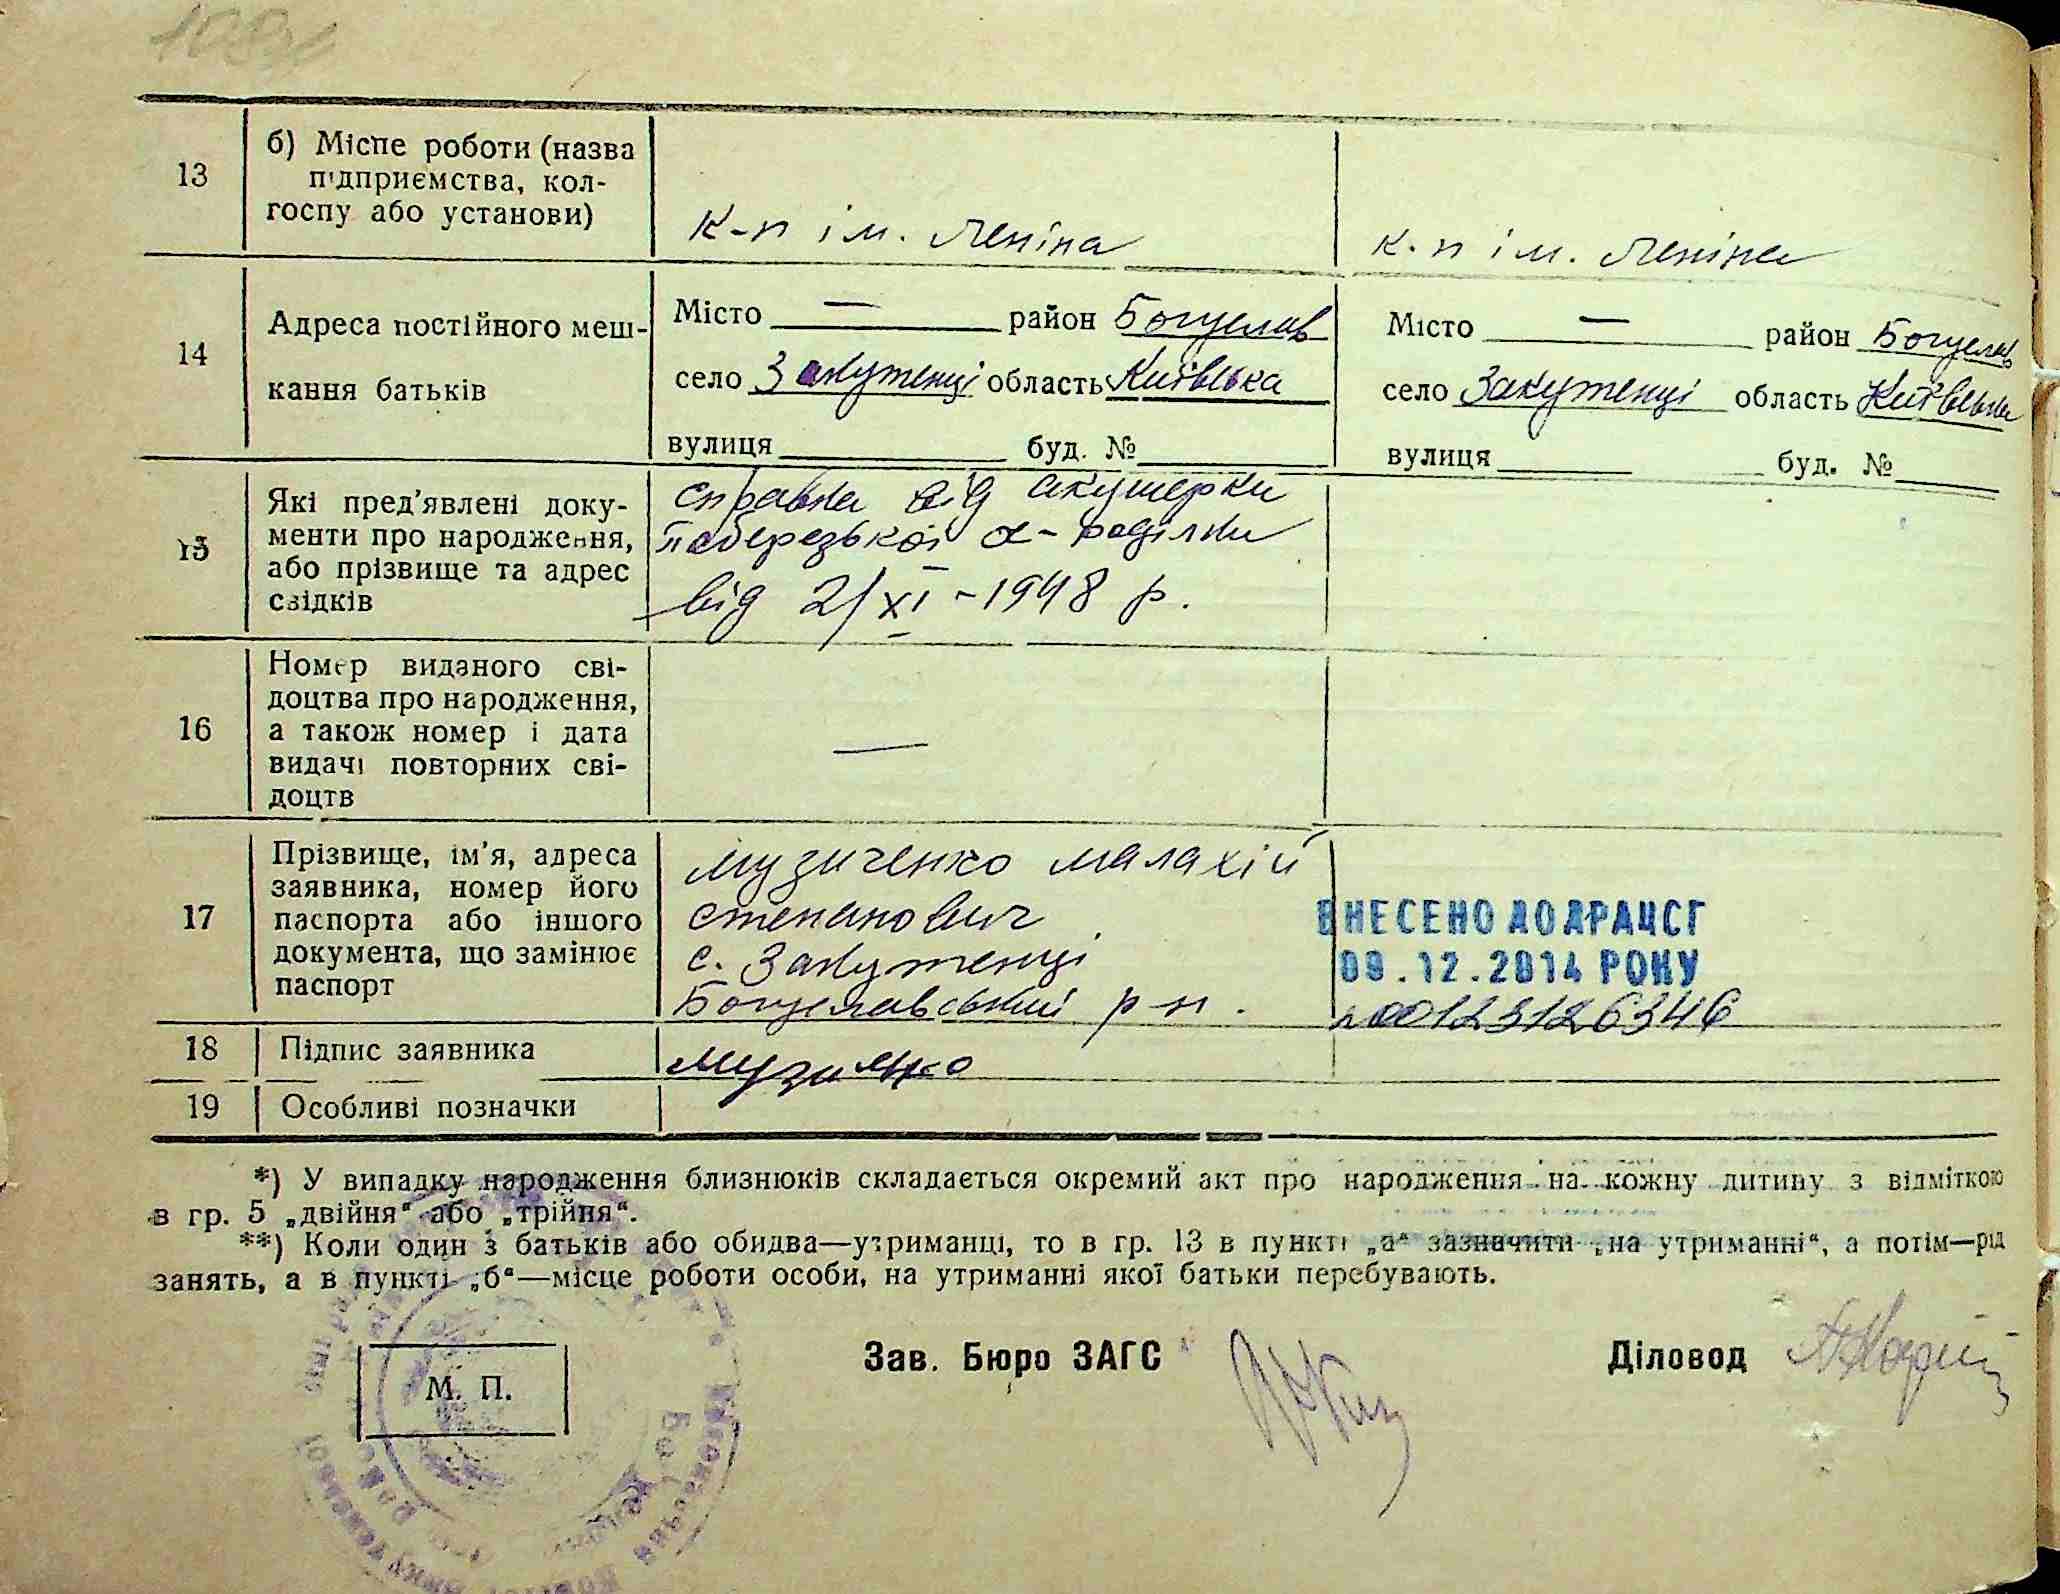 13
б) Місце роботи (назва
підприємства, кол-
госпу або установи)
к-п ім. Леніна
к-п ім. Леніна
14
Адреса постійного меш-
кання батьків
Місто — район Богуслав
село Закутенці область Київська
вулиця буд. №
Місто — район Богуслав
село Закутенці область Київська
вулиця буд. №
15
Які пред'явлені доку-
менти про народження,
або прізвище та адрес
свідків
справка від акушерки
від 2/XI - 1948 р.
16
Номер виданого сві-
доцтва про народження,
а також номер і дата
видачі повторних сві-
доцтв
—
17
Прізвище, ім'я, адреса
заявника, номер його
паспорта або іншого
документа, що замінює
паспорт
Музиченко Малахій
Степанович
с. Закутенці
Богуславський р-н.
ВНЕСЕНО ДО ДРАЦСГ
09.12.2014 РОКУ
№00123126346
18
Підпис заявника
19
Особливі позначки
*) У випадку народження близнюків складається окремий акт про народження на кожну дитину з відміткою
в гр. 5 „двійня“ або „трійня“.
**) Коли один з батьків або обидва—утриманці, то в гр. 13 в пункті „а“ зазначити „на утриманні“, а потім—рід
занять, а в пункті „б“—місце роботи особи, на утриманні якої батьки перебувають.
М. П.
Зав. Бюро ЗАГС
Діловод